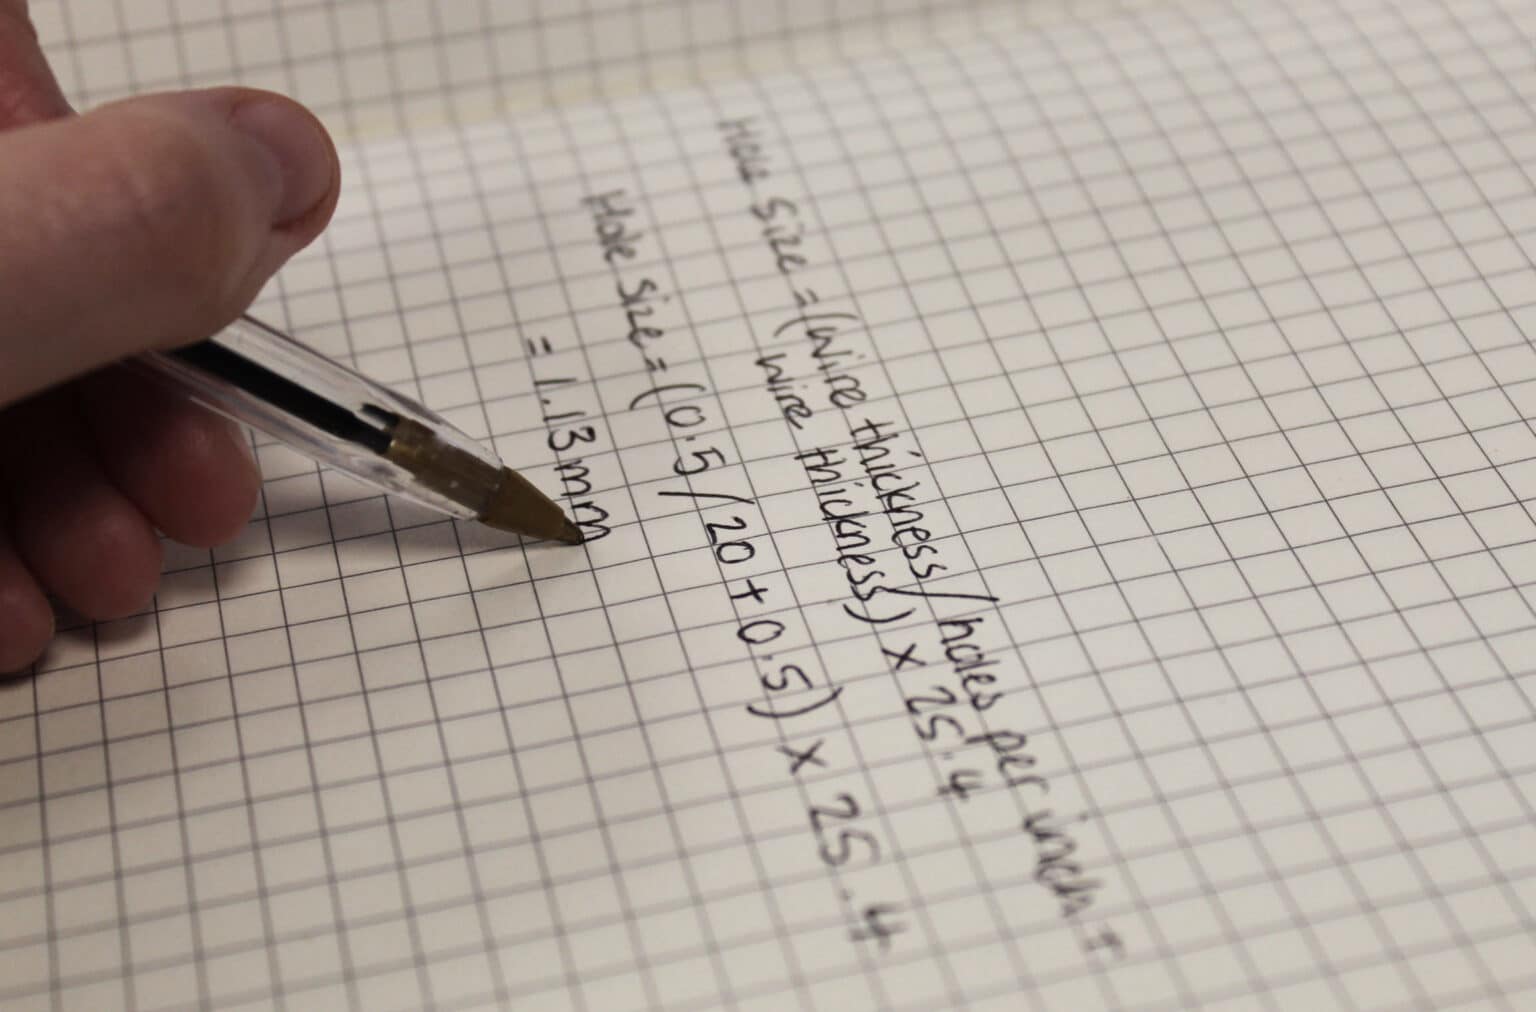 Hole Size = (Wire thickness/holes per inch +
Wire thickness) x 25.4
Hole Size = (0.5/20+0.5) x 25.4
= 1.13mm